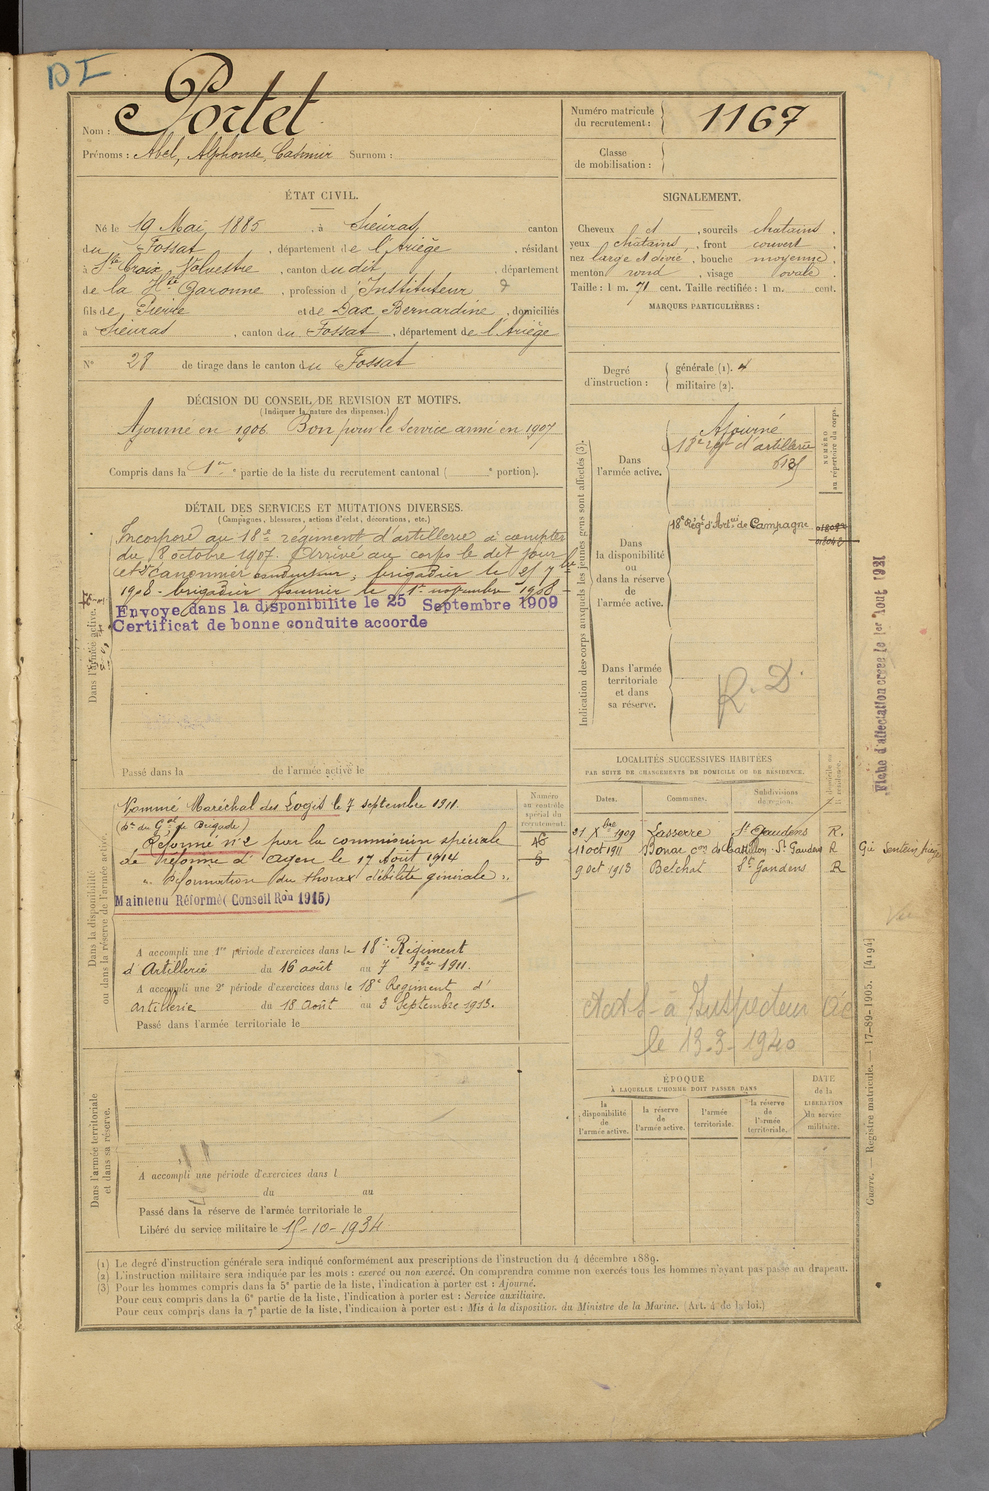 DI
Nom : Portet
Prénoms : Abel, Alphonse, Casimir Surnom :
Numéro matricule du recrutement : 1167
Classe de mobilisation :
ÉTAT CIVIL.
Né le 19 Mai 1885, à Sieuras, canton
du Fossat, département de l'Ariège, résidant
à Ste Croix Volvestre, canton du dit, département
de la Hte Garonne, profession d'Instituteur
fils de Pierre et de Dax Bernardine, domiciliés
à Sieuras, canton du Fossat, département de l'Ariège
N° 28 de tirage dans le canton du Fossat
SIGNALEMENT.
Cheveux et, sourcils chatains.
yeux chatains, front couvert.
nez large et dévié, bouche moyenne,
menton rond, visage ovale.
Taille : 1 m. 71 cent. Taille rectifiée : 1 m. cent.
MARQUES PARTICULIÈRES :
Degré d'instruction : générale (1). 4
militaire (2).
DÉCISION DU CONSEIL DE REVISION ET MOTIFS.
(Indiquer la nature des dispenses.)
Ajourné en 1906. Bon pour le service armé en 1907
Compris dans la 1re partie de la liste du recrutement cantonal ( e portion).
DÉTAIL DES SERVICES ET MUTATIONS DIVERSES.
(Campagnes, blessures, actions d'éclat, décorations, etc.)
Dans l'armée active.
Incorporé au 18e régiment d'artillerie à compter
du 8 octobre 1907. Arrivé au corps le dit jour
et 2e canonnier conducteur; brigadier le 25 7bre
1908 - brigadier fourrier le 1er novembre 1908 -
Envoyé dans la disponibilite le 25 Septembre 1909
Certificat de bonne conduite accorde
Passé dans la de l'armée active le
Indication des corps auxquels les jeunes gens sont affectés (3).
NUMÉRO au répertoire du corps.
Dans l'armée active.
Ajourné
18e rgt d'artillerie
Dans la disponibilité ou dans la réserve de l'armée active.
18e Régt d'Artrie de Campagne
Dans l'armée territoriale et dans sa réserve.
R. D.
Fiche d'affectation créée le 1er Aout 1921
Dans la disponibilité ou dans la réserve de l'armée active.
Numéro au contrôle spécial du recrutement.
Nommé Maréchal des Logis le 7 septembre 1911
Réformé n°2 par la commission spéciale
de réforme d'Agen le 17 Août 1914
"Déformation du thorax débilité générale".
Maintenu Réformé (Conseil Ron 1915)
A accompli une 1re période d'exercices dans le 18e Régiment
d'Artillerie du 16 août au 7 7bre 1911.
A accompli une 2e période d'exercices dans le 18e Régiment d'
artillerie du 18 Août au 3 Septembre 1913.
Passé dans l'armée territoriale le
LOCALITÉS SUCCESSIVES HABITÉES
PAR SUITE DE CHANGEMENTS DE DOMICILE OU DE RÉSIDENCE.
Dates. Communes. Subdivisions de région. Domicile ou résidence.
21 Xbre 1909 Lasserre St Gaudens R.
11 oct 1911 Bonac con de Castillon St Gaudens R
9 oct 1913 Betchat St Gaudens R
le 13-3-1940
ÉPOQUE
À LAQUELLE L'HOMME DOIT PASSER DANS
la disponibilité de l'armée active.
la réserve de l'armée active.
l'armée territoriale.
la réserve de l'armée territoriale.
DATE de la LIBÉRATION du service militaire.
Dans l'armée territoriale et dans sa réserve.
A accompli une période d'exercices dans l
du au
Passé dans la réserve de l'armée territoriale le
Libéré du service militaire le 15-10-1934
Guerre. — Registre matricule. — 17-89-1905. [4194]
(1) Le degré d'instruction générale sera indiqué conformément aux prescriptions de l'instruction du 4 décembre 1889.
(2) L'instruction militaire sera indiquée par les mots : exercé ou non exercé. On comprendra comme non exercés tous les hommes n'ayant pas passé au drapeau.
(3) Pour les hommes compris dans la 5e partie de la liste, l'indication à porter est : Ajourné.
Pour ceux compris dans la 6e partie de la liste, l'indication à porter est : Service auxiliaire.
Pour ceux compris dans la 7e partie de la liste, l'indication à porter est : Mis à la disposition du Ministre de la Marine. (Art. 4 de la loi.)